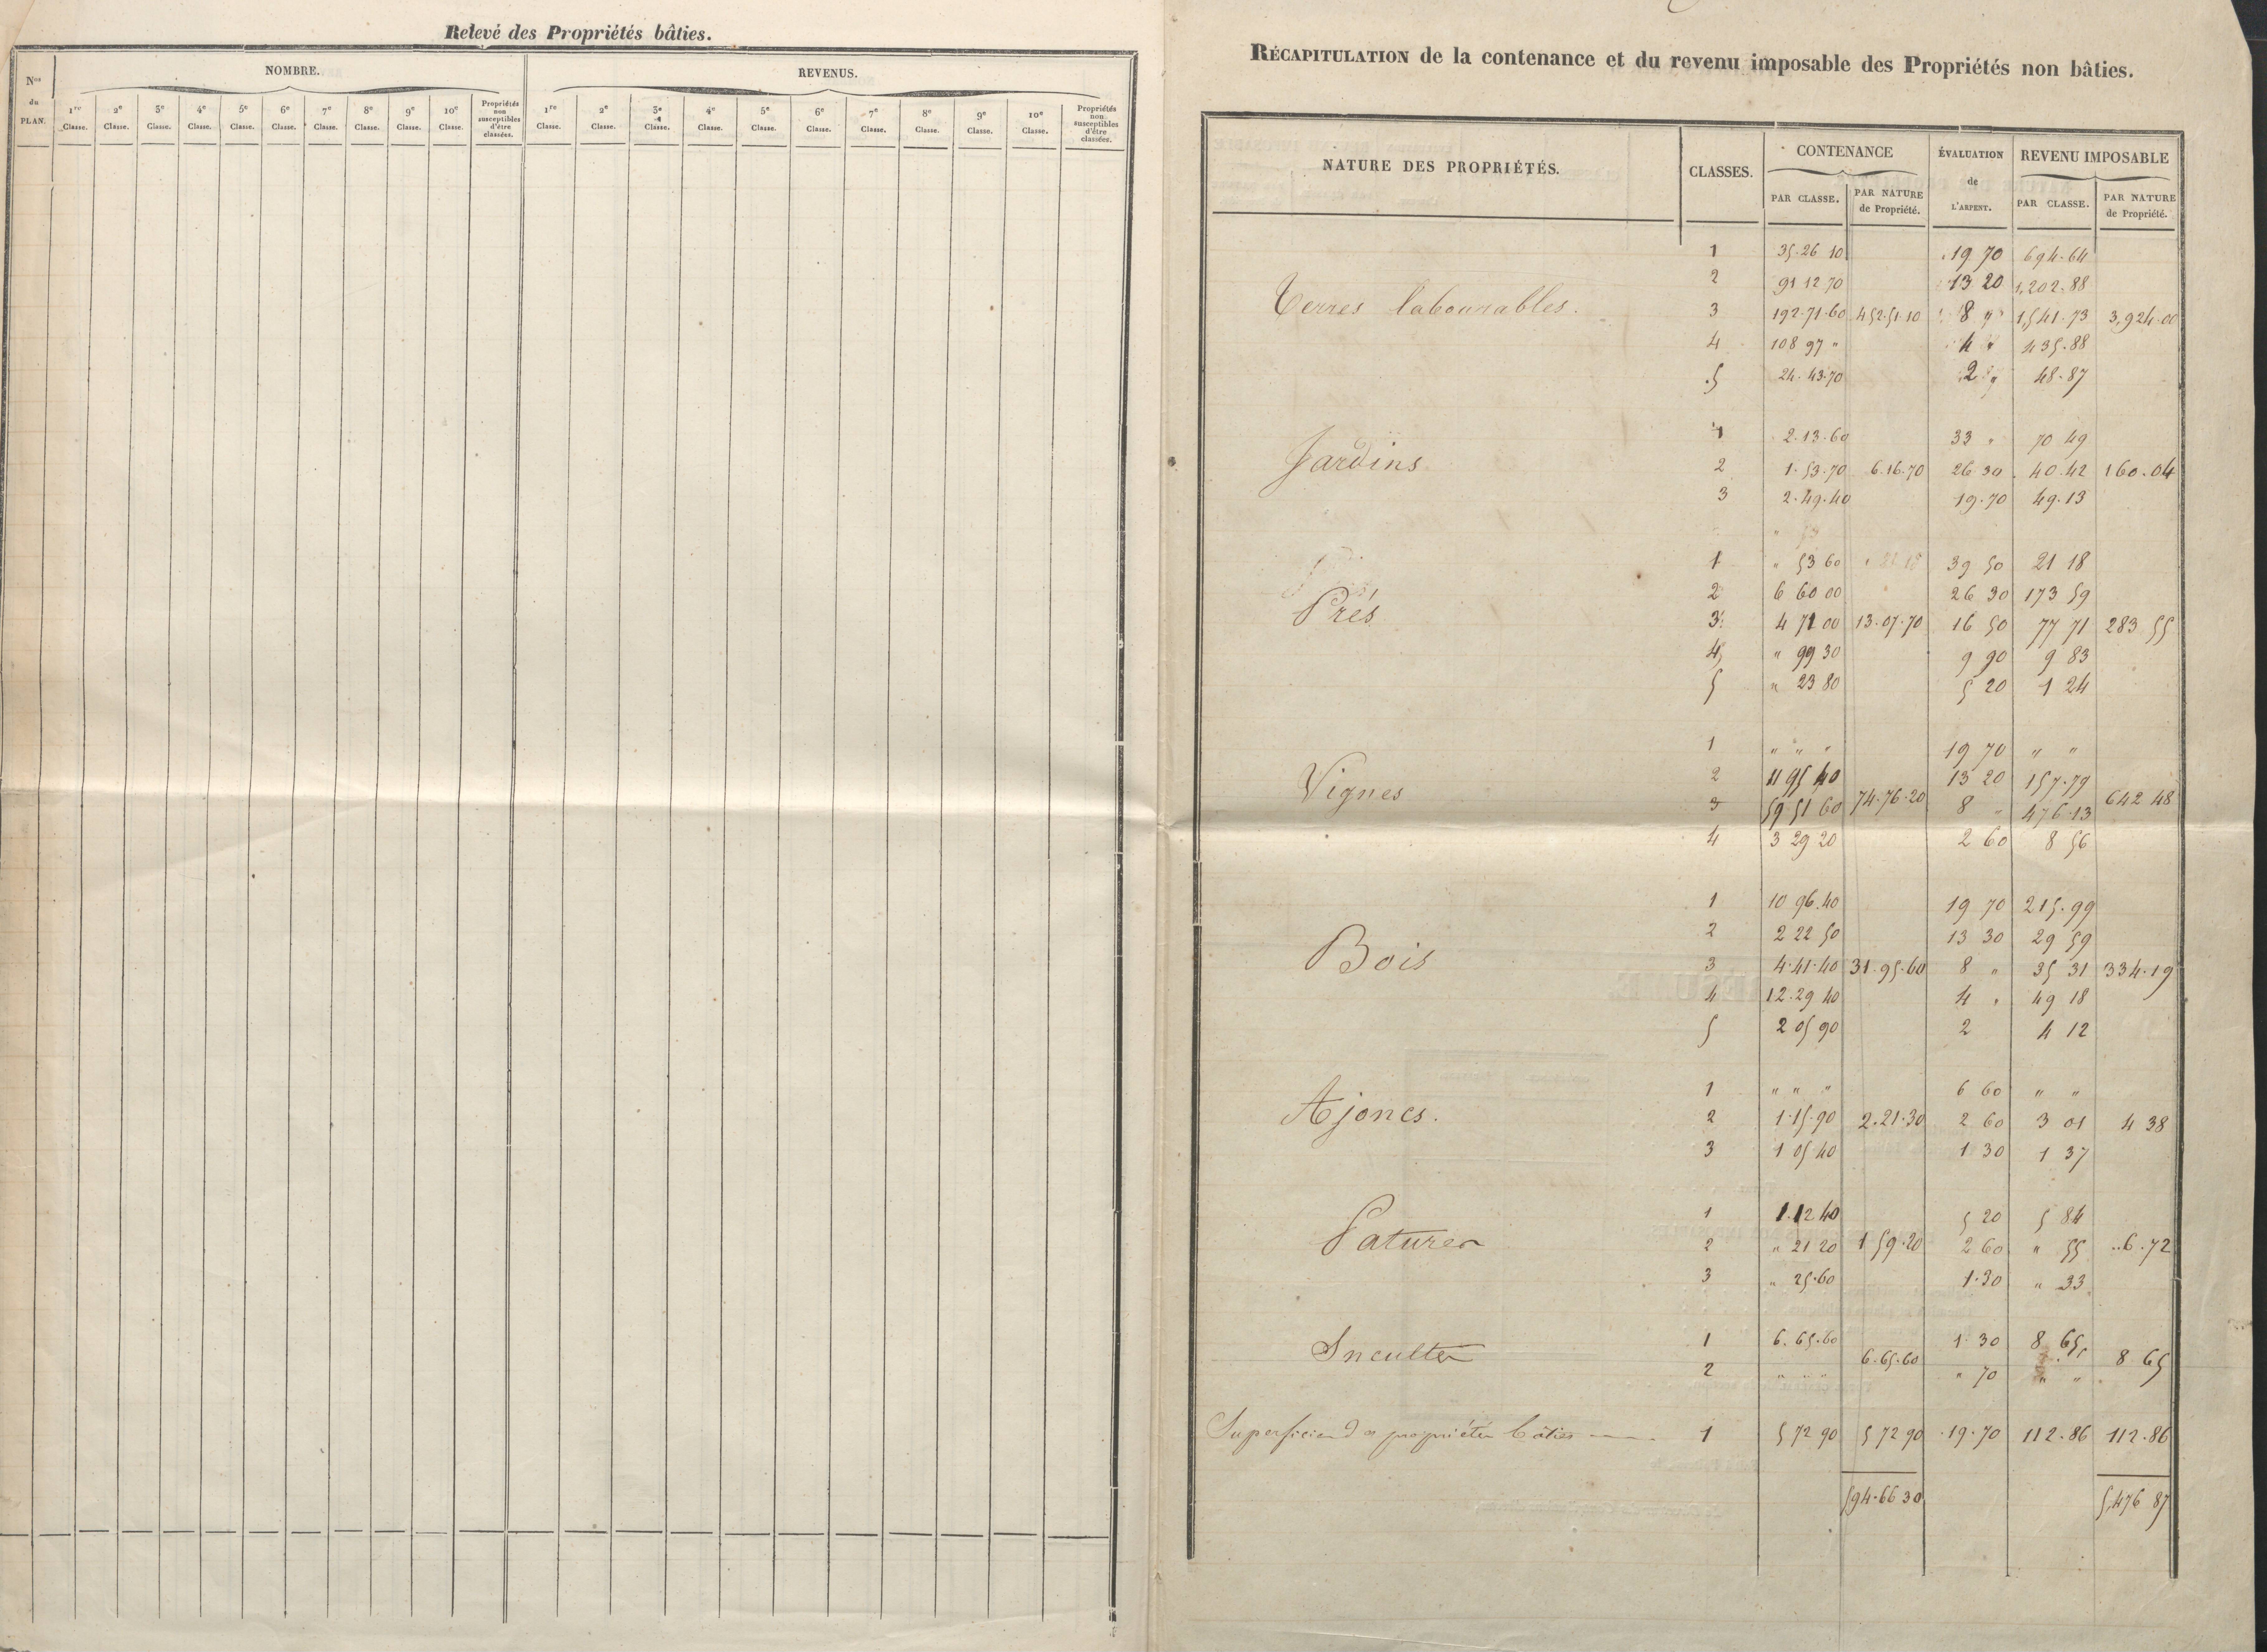 Relevé des Propriétés bâties.
Nos du PLAN. NOMBRE. REVENUS.
1re Classe. 2e Classe. 3e Classe. 4e Classe. 5e Classe. 6e Classe. 7e Classe. 8e Classe. 9e Classe. 10e Classe. Propriétés non susceptibles d'être classées. 1re Classe. 2e Classe. 3e Classe. 4e Classe. 5e Classe. 6e Classe. 7e Classe. 8e Classe. 9e Classe. 10e Classe. Propriétés non susceptibles d'être classées.
RÉCAPITULATION de la contenance et du revenu imposable des Propriétés non bâties.
NATURE DES PROPRIÉTÉS. CLASSES. CONTENANCE ÉVALUATION de L'ARPENT. REVENU IMPOSABLE
PAR CLASSE. PAR NATURE de Propriété. PAR CLASSE. PAR NATURE de Propriété.
1 35.26 10 19 70 694.64
2 91 12 70 13 20 1,202.88
Terres labourables. 3 192.71.60 452.51 10 8 " 1,541.73 3,924.00
4 108 97 " 4 " 435.88
5 24.43.70 2 " 48.87
1 2.13.60 33 " 70 49
Jardins 2 1.53.70 6.16.70 26 30 40.42 160.04
3 2.49.40 19.70 49.13
1 " 53 60 39 50 21 18
2 6 60 00 26 30 173 59
Prés 3 4 71 00 13.07.70 16 50 77 71 283 55
4 " 99 30 9 90 9 83
5 " 23 80 5 20 1 24
1 " " " 19 70 " "
2 11 95 40 13 20 157.79
Vignes 3 59 51 60 74.76.20 8 " 476.13 642 48
4 3 29 20 2 60 8 56
1 10 96.40 19 70 215.99
2 2 22 50 13 30 29 59
Bois 3 4.41.40 31.95.60 8 " 35 31 334.19
4 12.29 40 4 " 49 18
5 2 05 90 2 4 12
1 " " " 6 60 " "
Ajoncs. 2 1.15.90 2.21.30 2 60 3 01 4 38
3 1 05 40 1 30 1 37
1 1.12 40 5 20 5 84
Patures 2 " 21 20 1 59.20 2 60 " 55 6.72
3 " 25.60 1.30 " 33
Incultes 1 6.65.60 6.65.60 1 30 8 65 8 65
2 " " " " 70 " "
Superficie des propriétés bâties 1 5 72 90 5 72 90 19.70 112.86 112.86
594.66 30 5,476 87